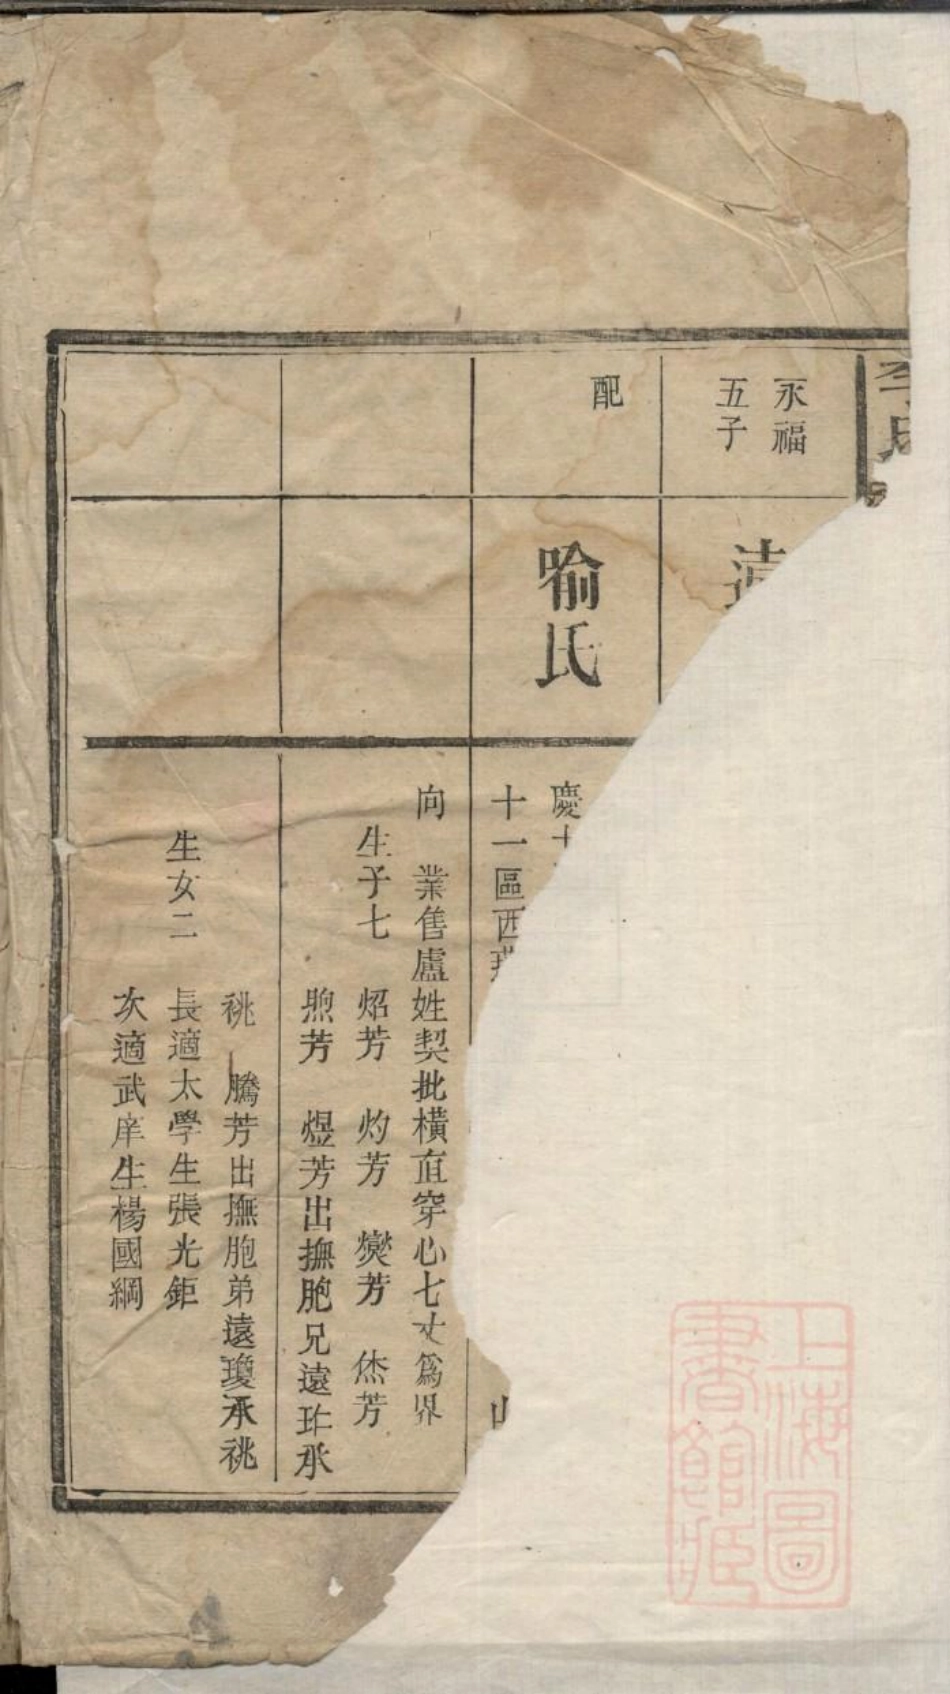 李氏
永福
五子
遠
配
喻氏
慶十
十一區西
山
向　業售盧姓契批橫直穿心七丈爲界
生子七　炤芳　灼芳　爕芳　烋芳
煦芳　煜芳出撫胞兄遠玝承
祧　騰芳出撫胞弟遠瓊承祧
生女二　長適太學生張光鉅
次適武庠生楊國綱
上海圖
書館藏